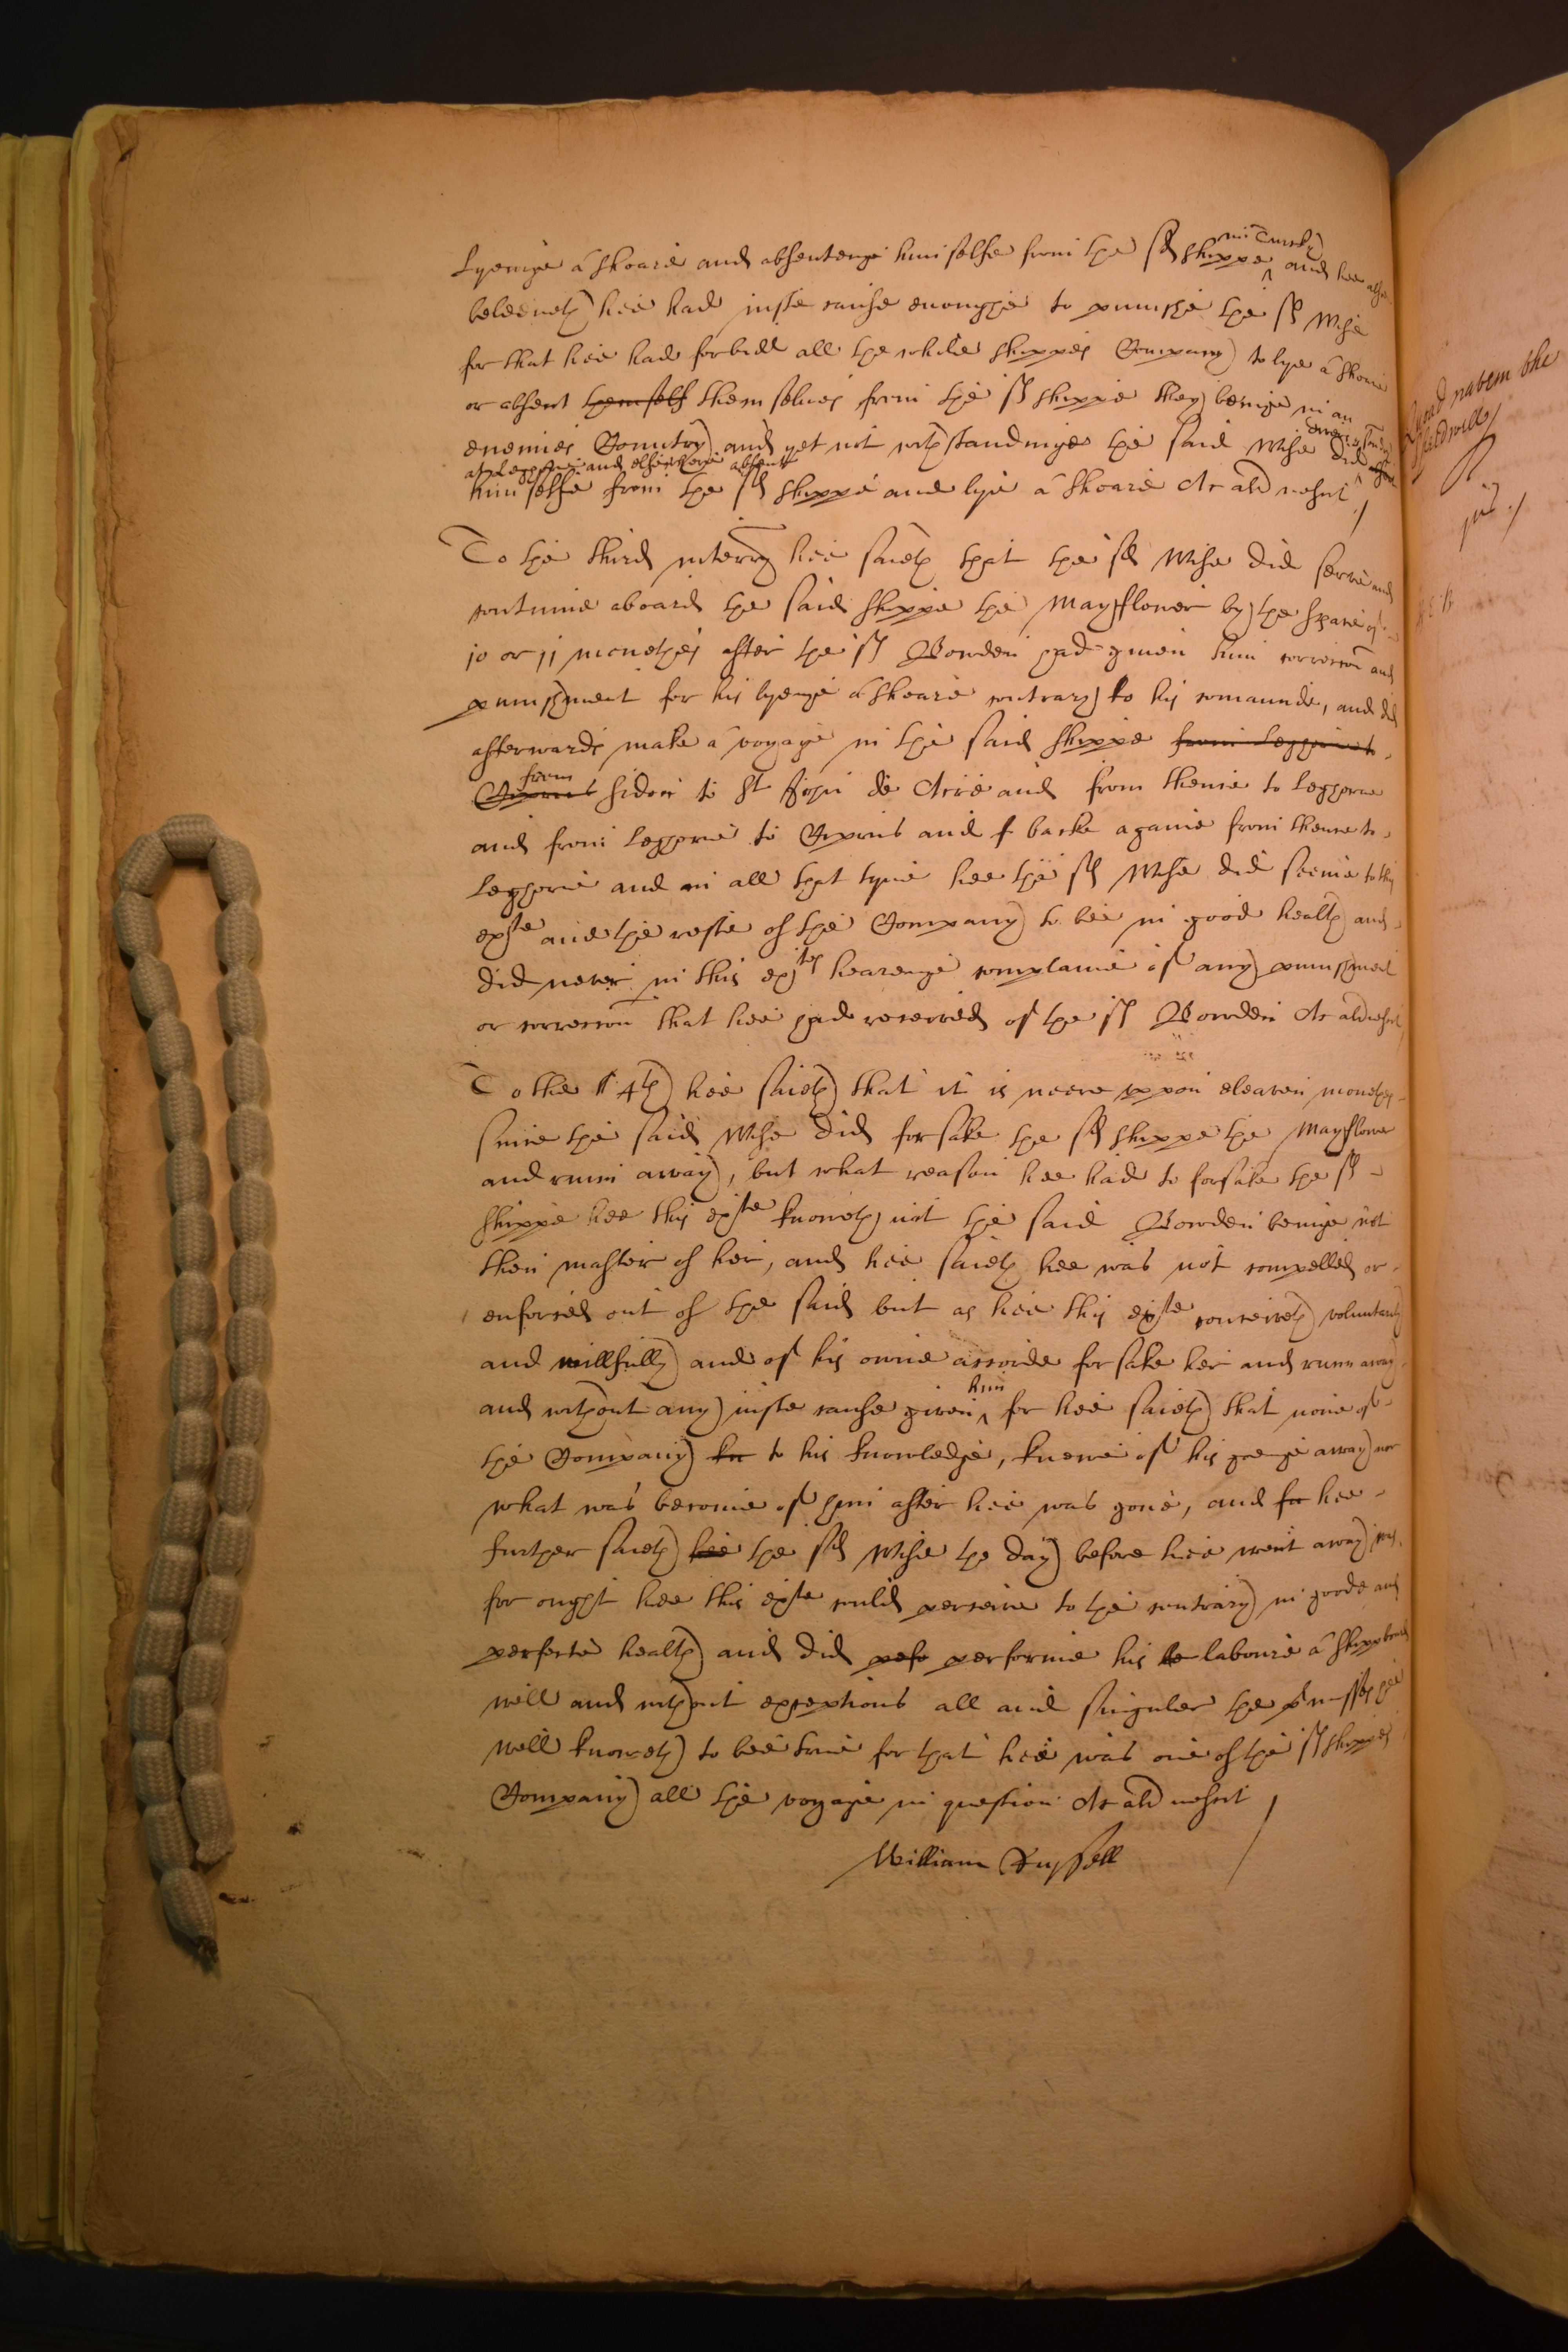 in Turky
Lyenge a shoare and absentenge him selfe from the sd shippe and hee also
beleeueth hee had iuste cause enoughe to punishe the sd Wise
for that hee had forbidd all the whole shippes Company to lye a shoare
or absent themself them selues from the sd shippe they beinge in an
enemies Countrey and yet not withstandinge the said Wise did
at Legorne and elsewhere absent
him selfe from the sd shippe and lye a shoare Et ald nescit
To the third interry hee saieth that the sd Wise did serve and
continue aboard the said shippe the Mayflower by the space of
10 or 11 monethes after the sd Bowden had giuen him correccon and
punishment for his lyenge a shoare contrary to his comaunde, and did
afterwards make a voyage in the said shippe from Leghorne to
from
Ciprus Sidon to St John de Acrie and from thence to Leghorne
and from Leghorne to Ciprus and f backe againe from thence to
Leghorne and in all that tyme hee the sd Wise did seeme to this
exte and the reste of the Company to bee in good health and
did never in this extes hearenge complaine of any punishment
or correccon that hee had receaved of the sd Bowden Et ald nescit
To the 4th hee saieth that it is neere uppon eleaven monethes
since the said Wise did forsake the sd shippe the Mayflower
and runn away, but what reason hee had to forsake the sd
shippe hee this exte knoweth not the said Bowden beinge not
then master of her, and hee saieth hee was not compelled or
enforced out of the said but as hee this exte conceiveth voluntarily
and willfully and of his owne accorde forsake her and runn away
him
and without any iuste cause given for hee saieth that none of
the Company kn to his knowledge, knewe of his goenge away nor
what was become of him after hee was gone, and fu hee
further saieth hee the sd Wise the day before hee went away was
for ought hee this exte could perceive to the contrary in goode and
perfecte health and did pefo performe his le laboure a shippboard
well and without exceptions all and singuler the pmisses hee
well knoweth to bee true for that hee was one of the sd shippes
Company all the voyage in question Et ald nescit
William Russell